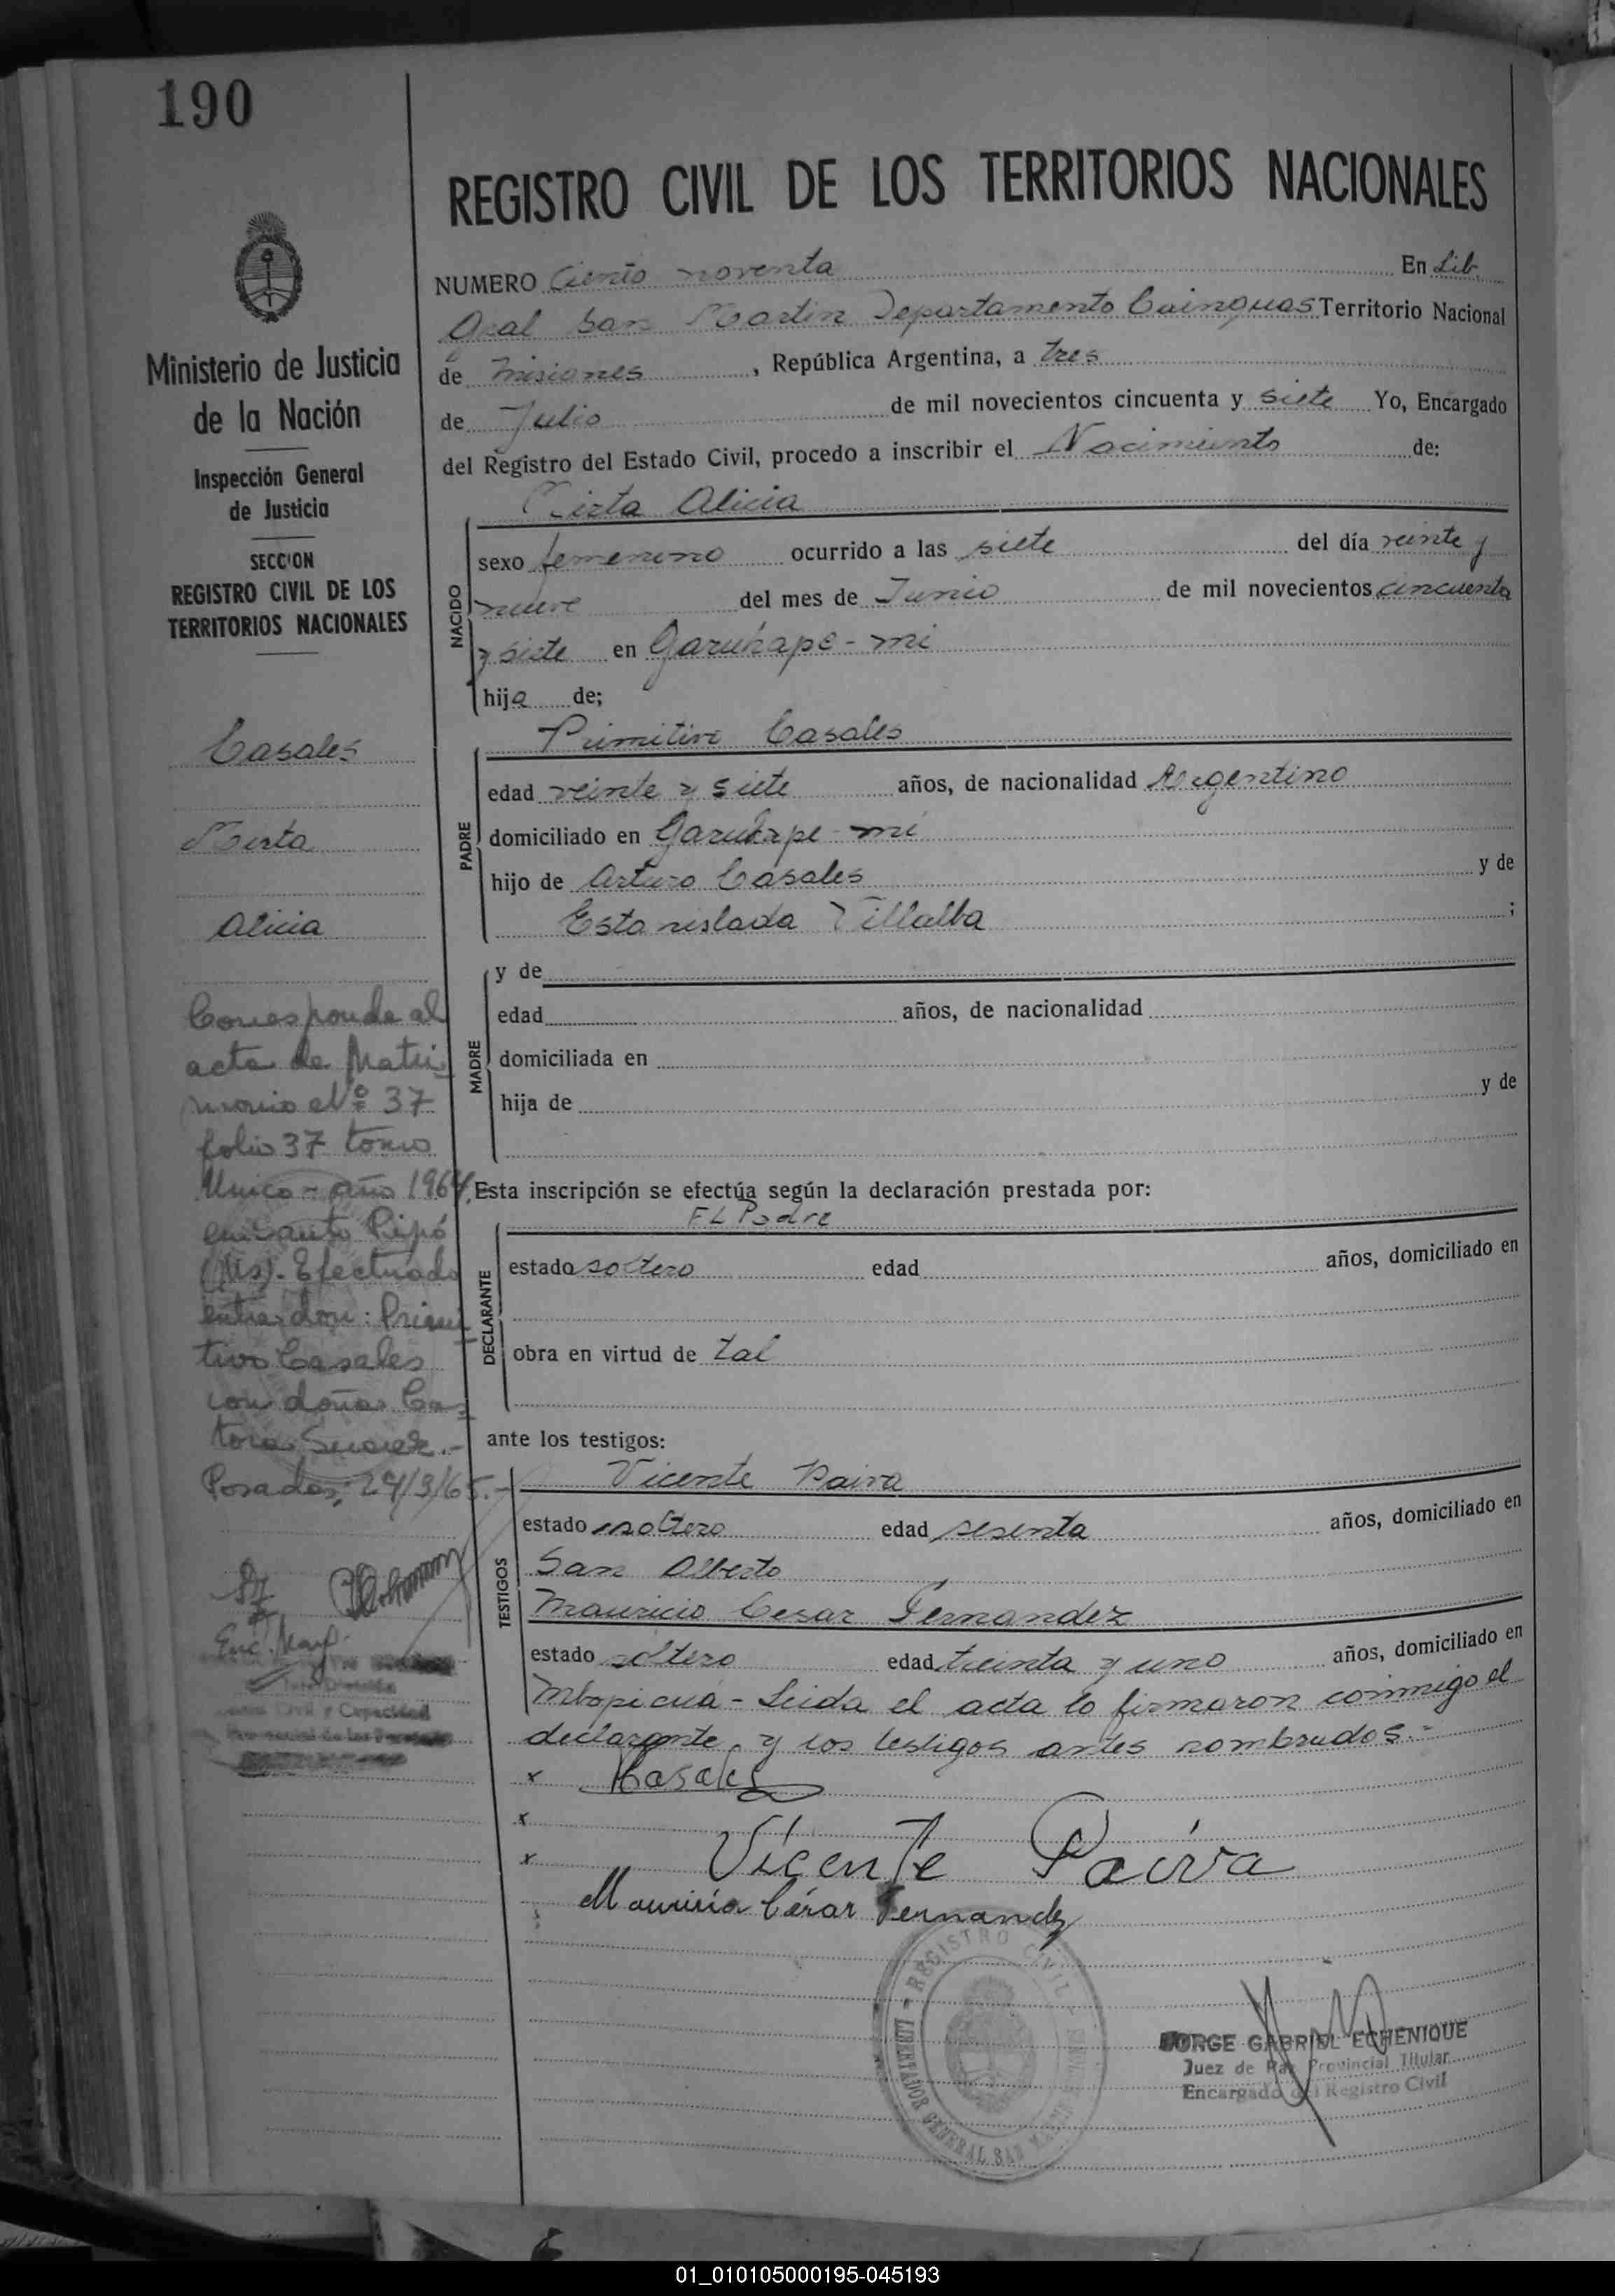 190
REGISTRO CIVIL DE LOS TERRITORIOS NACIONALES
Ministerio de Justicia
de la Nación
Inspección General
de Justicia
SECCION
REGISTRO CIVIL DE LOS
TERRITORIOS NACIONALES
Casales
Mirta
Alicia
Corresponde al
acta de Matri-
monio Nº 37
folio 37 tomo
Unico - año 1964,
en Santo Pipó
(Ms). Efectuado
entre don: Primi
tivo Casales
con doña Cas
tora Suarez.-
Posadas, 29/3/65.-
Enc. Mayf.
NUMERO Ciento noventa En Lib.
Gral San Martin Departamento Cainguas Territorio Nacional
de Misiones, República Argentina, a tres
de Julio de mil novecientos cincuenta y siete Yo, Encargado
del Registro del Estado Civil, procedo a inscribir el Nacimiento de:
Mirta Alicia
NACIDO
sexo femenino ocurrido a las siete del día veinte y
nueve del mes de Junio de mil novecientos cincuenta
y siete en Garuhape-mi
hija de;
Primitivo Casales
PADRE
edad veinte y siete años, de nacionalidad Argentino
domiciliado en Garuhape-mi
hijo de Arturo Casales y de
Estanislada Villalba ;
MADRE
y de
edad años, de nacionalidad
domiciliada en
hija de y de
Esta inscripción se efectúa según la declaración prestada por:
El Padre
DECLARANTE
estado soltero edad años, domiciliado en
obra en virtud de tal
ante los testigos:
Vicente Paiva
TESTIGOS
estado soltero edad sesenta años, domiciliado en
San Alberto
Mauricio Cesar Fernandez
estado soltero edad treinta y uno años, domiciliado en
Mbopicuá - Leida el acta lo firmaron conmigo el
declarante y los testigos antes nombrados.-
x Casales
x
x Vicente Paiva
Mauricio César Fernandez
REGISTRO CIVIL
LIBERTADOR GENERAL SAN MARTIN
JORGE GABRIEL ECHENIQUE
Juez de Paz Provincial Titular
Encargado del Registro Civil
01_010105000195-045193